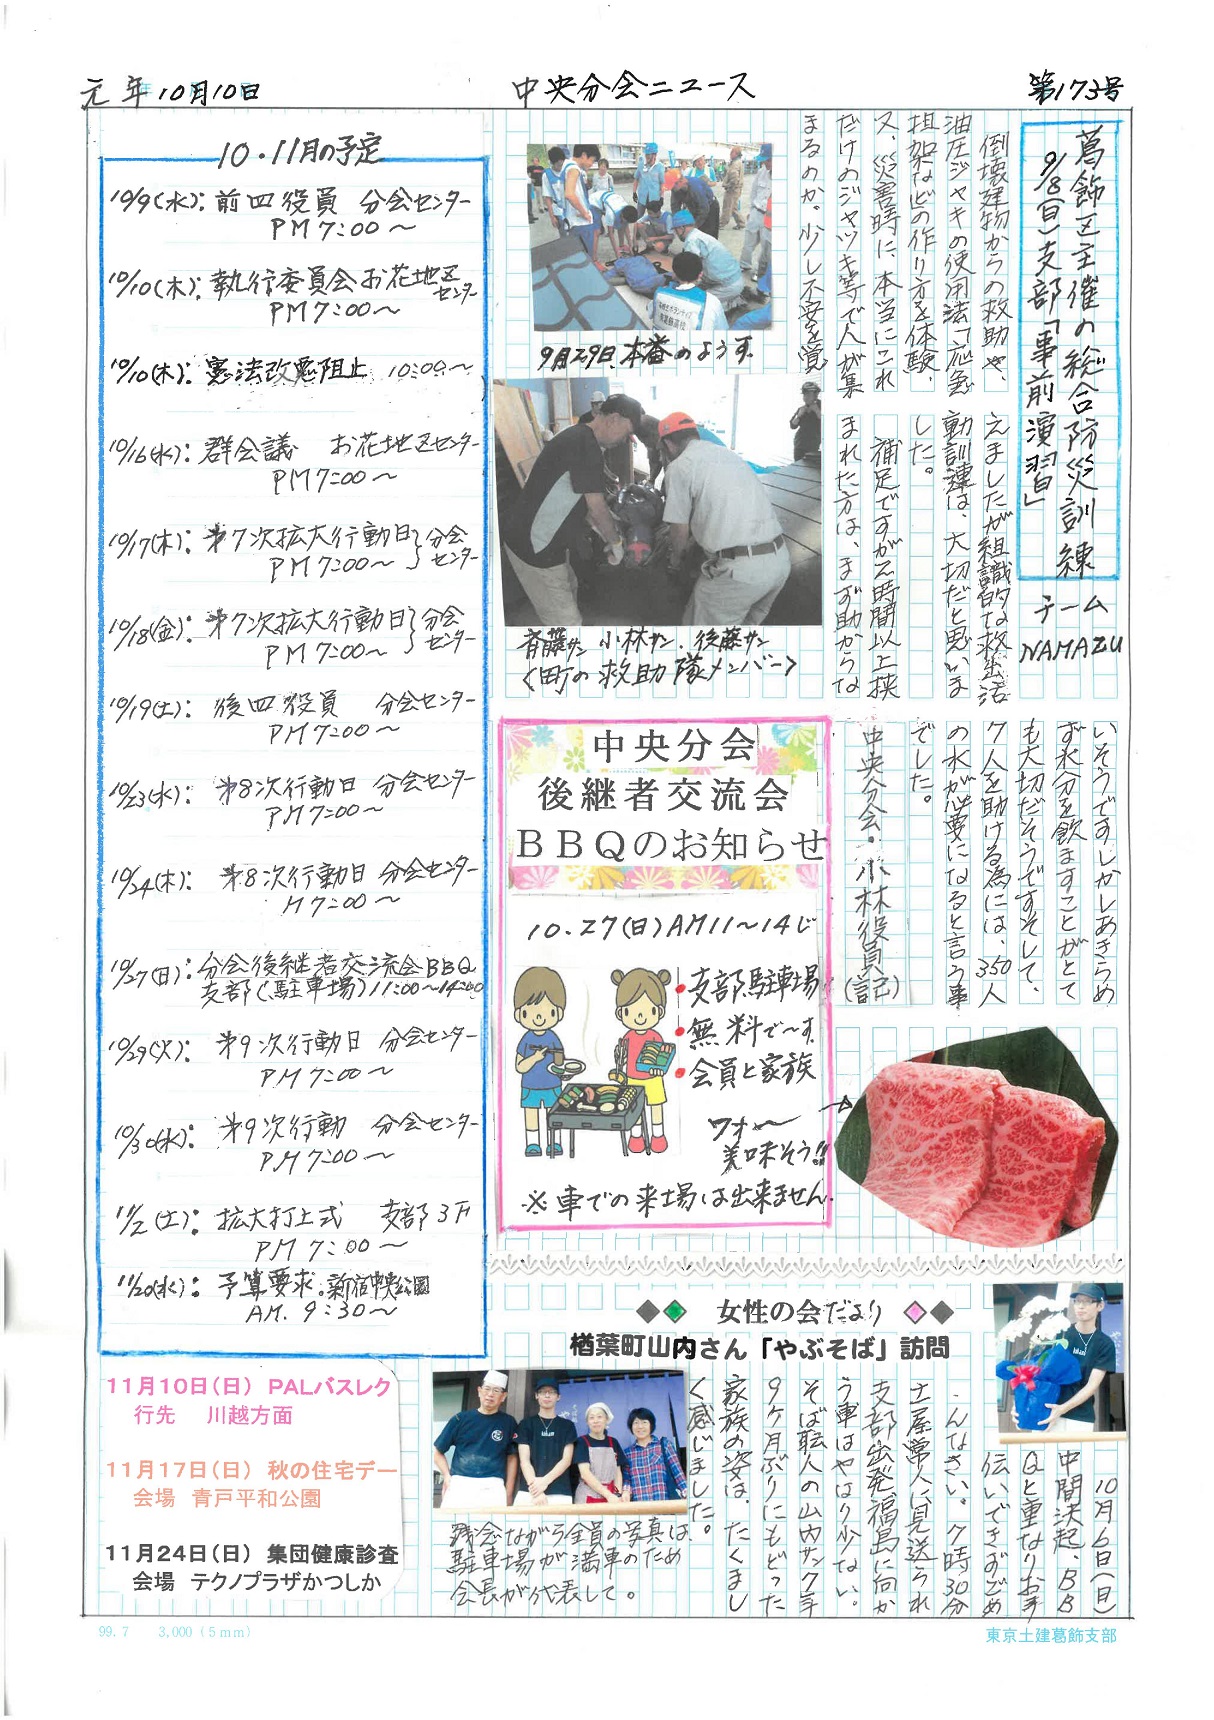 元年10月10日
中央分会ニュース
第173号
葛飾区主催の総合防災訓練
9/8(日)支部「事前演習」
チーム
NAMAZU
倒壊建物からの救助や、
油圧ジャキの使用法「応急
担架などの作り方を体験、
又、災害時に、本当にこれ
だけのジャツキ等で人が集
まるのか。少し不安を覚
えましたが組織的な救出活
動訓練は、大切だと思いま
した。
補足ですが2時間以上挟
まれた方は、まず助からな
いそうですしかしあきらめ
ず水分を飲ますことがとて
も大切だそうですそして、
7人を助ける為には、350人
の水が必要になると言う事
でした。
中央分会・小林役員(記)
9月29日、本番のようす
斉藤サン 小林サン、後藤サン
〈町の救助隊メンバー〉
10・11月の予定
10/9(水): 前四役員 分会センター
PM7:00〜
10/10(木): 執行委員会 お花地区センター
PM7:00〜
10/10(木): 憲法改悪阻止 10:00〜
10/16(水): 群会議 お花地区センター
PM7:00〜
10/17(木): 第7次拡大行動日 分会センター
PM7:00〜
10/18(金): 第7次拡大行動日 分会センター
PM7:00〜
10/19(土): 後四役員 分会センター
PM7:00〜
10/23(水): 第8次行動日 分会センター
PM7:00〜
10/24(木): 第8次行動日 分会センター
M7:00〜
10/27(日): 分会後継者交流会BBQ
支部(駐車場)11:00〜14:00
10/29(火): 第9次行動日 分会センター
PM7:00〜
10/30(水): 第9次行動 分会センター
PM7:00〜
11/2(土): 拡大打上式 支部3F
PM7:00〜
11/20(水): 予算要求。新宿中央公園
AM.9:30〜
中央分会
後継者交流会
BBQのお知らせ
10.27(日)AM11〜14じ
・支部駐車場
・無料で〜す
・会員と家族
ワォ〜
美味そう!!
※車での来場は出来ません.
女性の会だより
楢葉町山内さん「やぶそば」訪問
10月6日(日)
中間決起、BB
Qと重なりお手
伝いできずごめ
んなさい。7時30分
土屋常人に見送られ
支部出発福島に向か
う車はやはり少ない。
そば職人の山内サン7手
9ケ月ぶりにもどった
家族の姿は、たくまし
く感じました。
残念ながら全員の写真は
駐車場が満車のため
会長が代表して。
11月10日(日) PALバスレク
行先 川越方面
11月17日(日) 秋の住宅デー
会場 青戸平和公園
11月24日(日) 集団健康診査
会場 テクノプラザかつしか
99.7 3,000(5mm)
東京土建葛飾支部